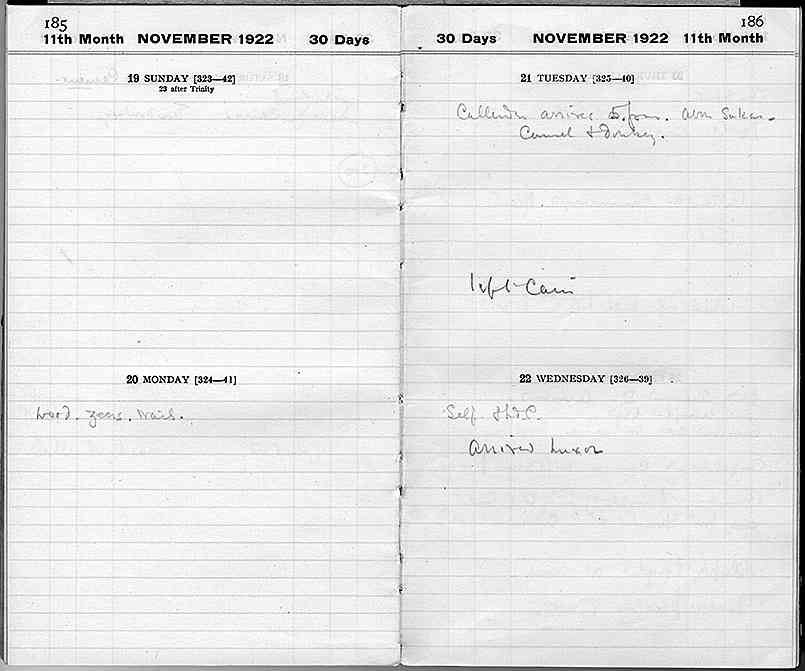 185
11th Month NOVEMBER 1922 30 Days
19 SUNDAY [323—42]
23 after Trinity
20 MONDAY [324—41]
Wood. zeers. Nails.
186
30 Days NOVEMBER 1922 11th Month
21 TUESDAY [325—40]
Callender arrives 5. p.m. Abu Sukar.
Camel & Donkey.
left Cairo
22 WEDNESDAY [326—39]
Self.
arrived Luxor